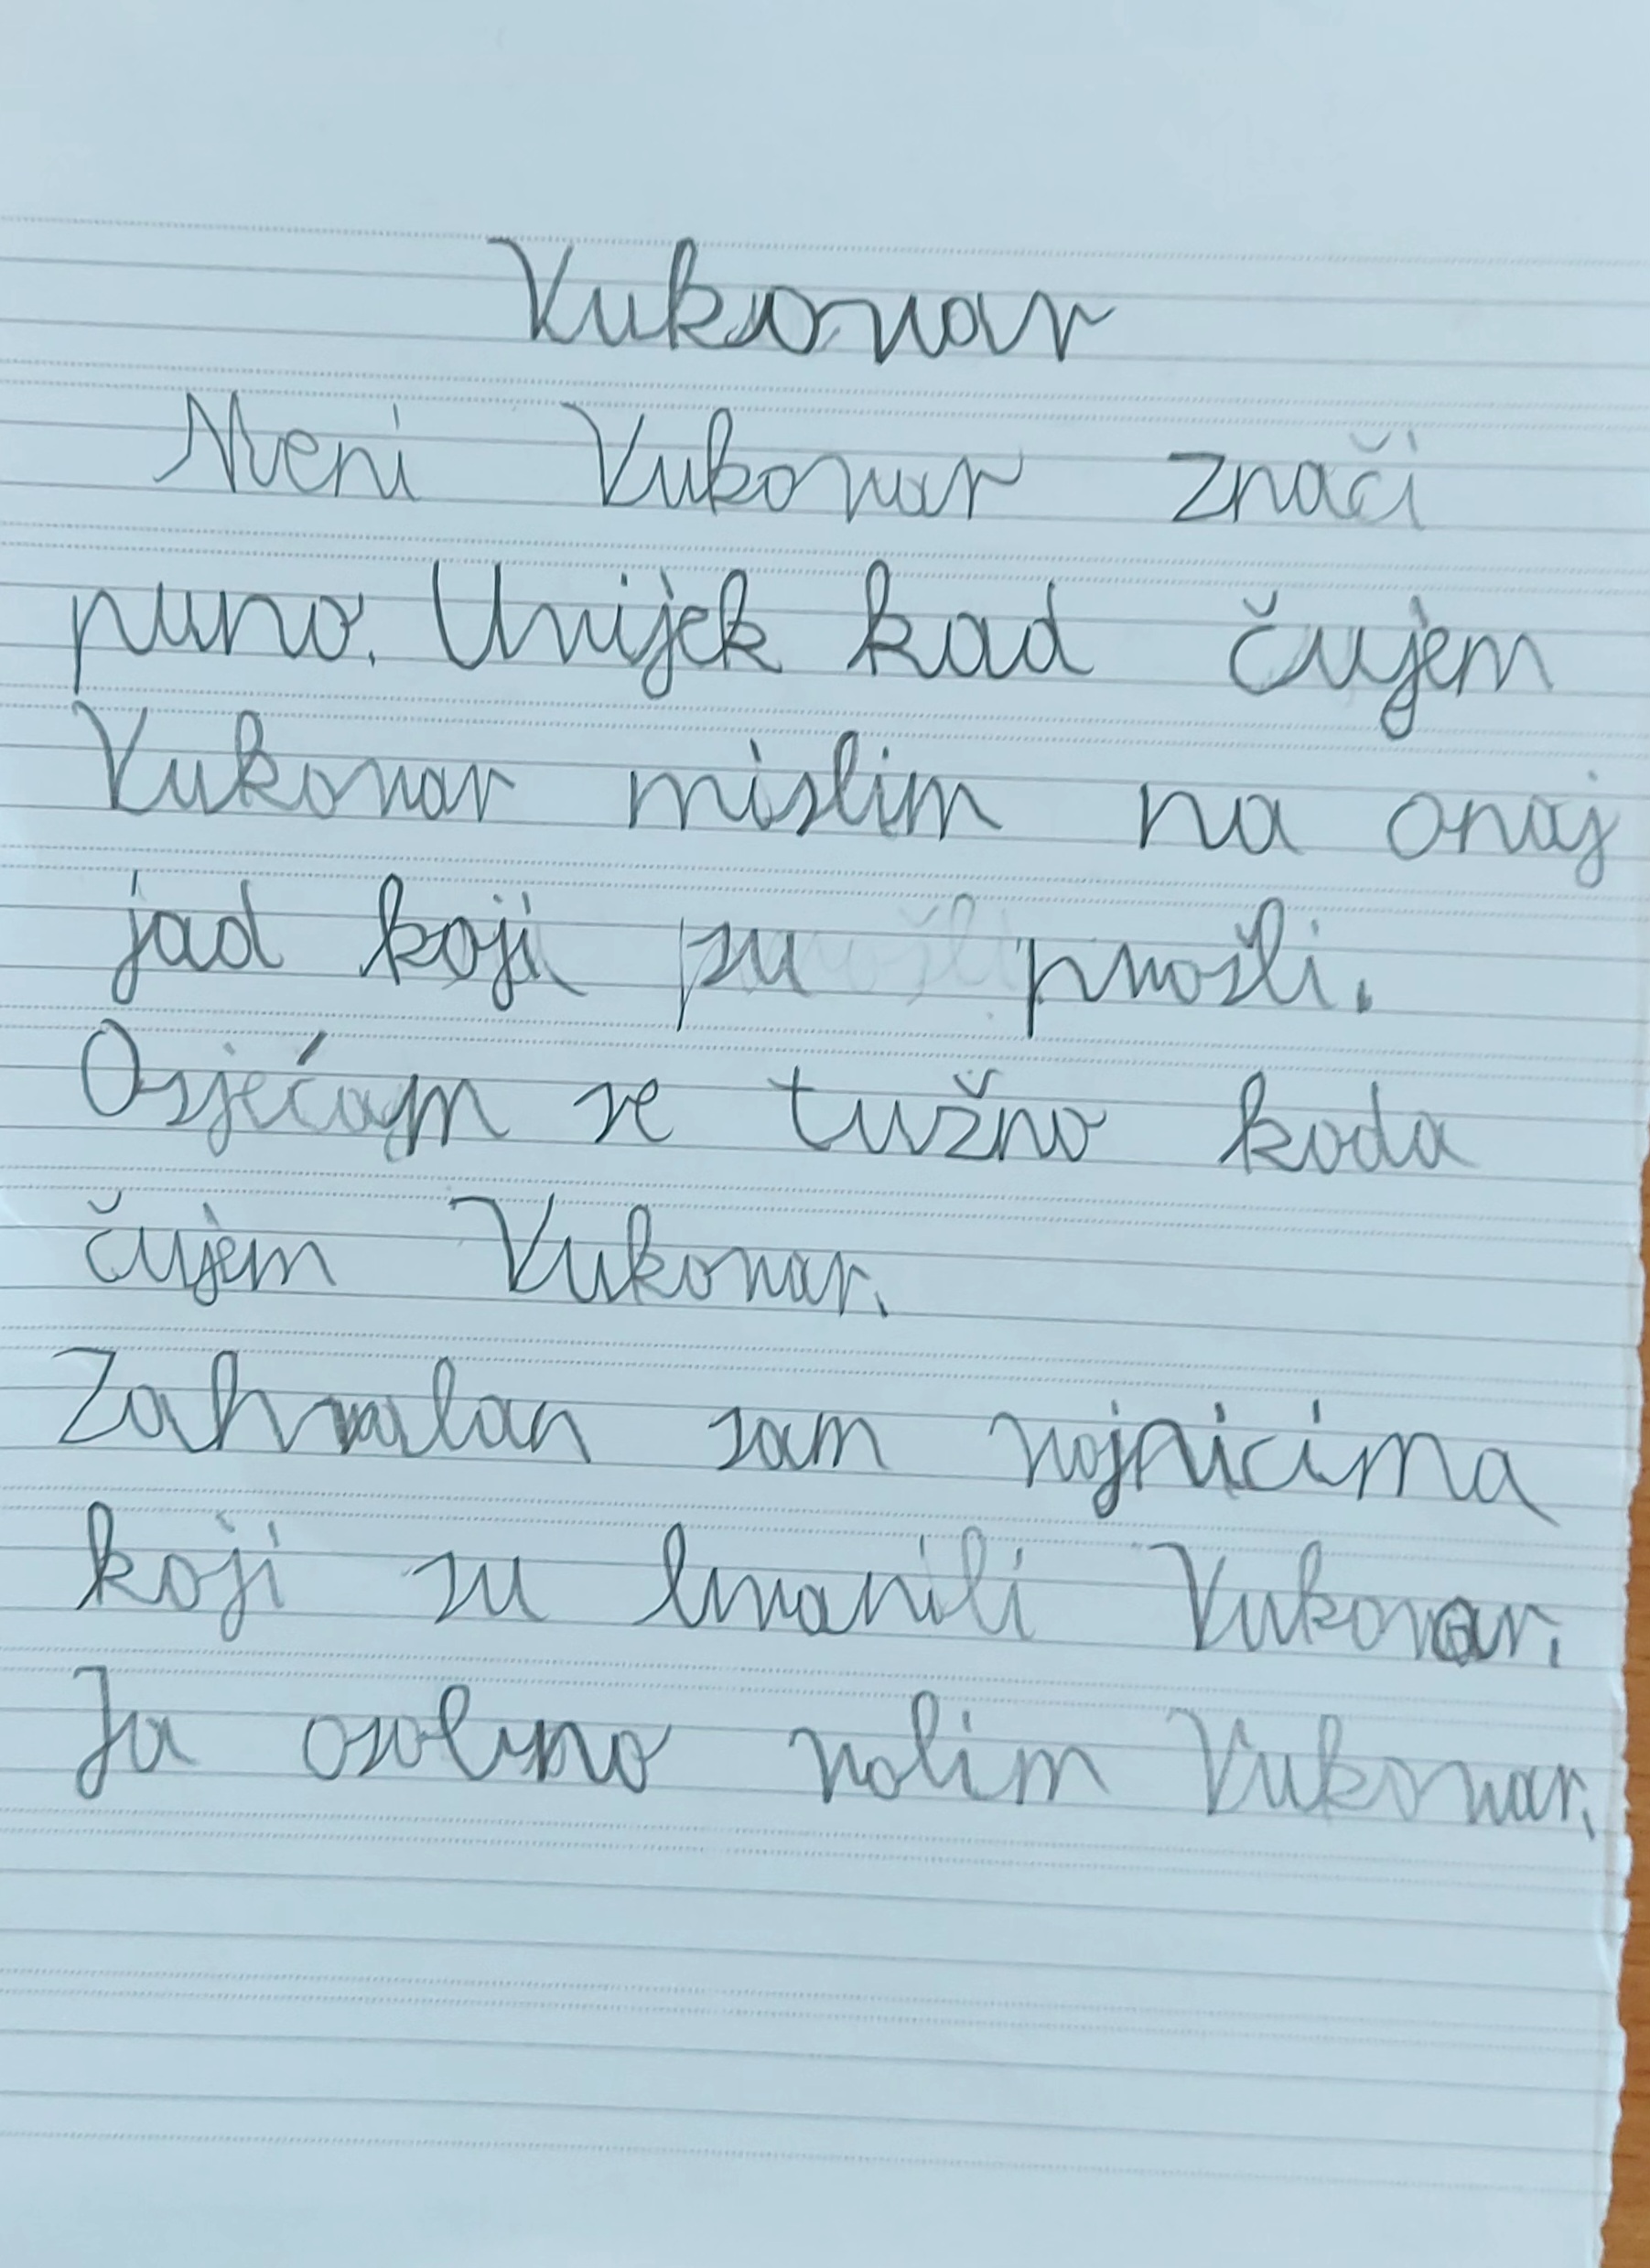 Vukovar
Meni Vukovar znači
puno. Uvijek kad čujem
Vukovar mislim na onaj
jad koji su prošli.
Osjećam se tužno kada
čujem Vukovar.
Zahvalan sam vojnicima
koji su branili Vukovar.
Ja osobno volim Vukovar.